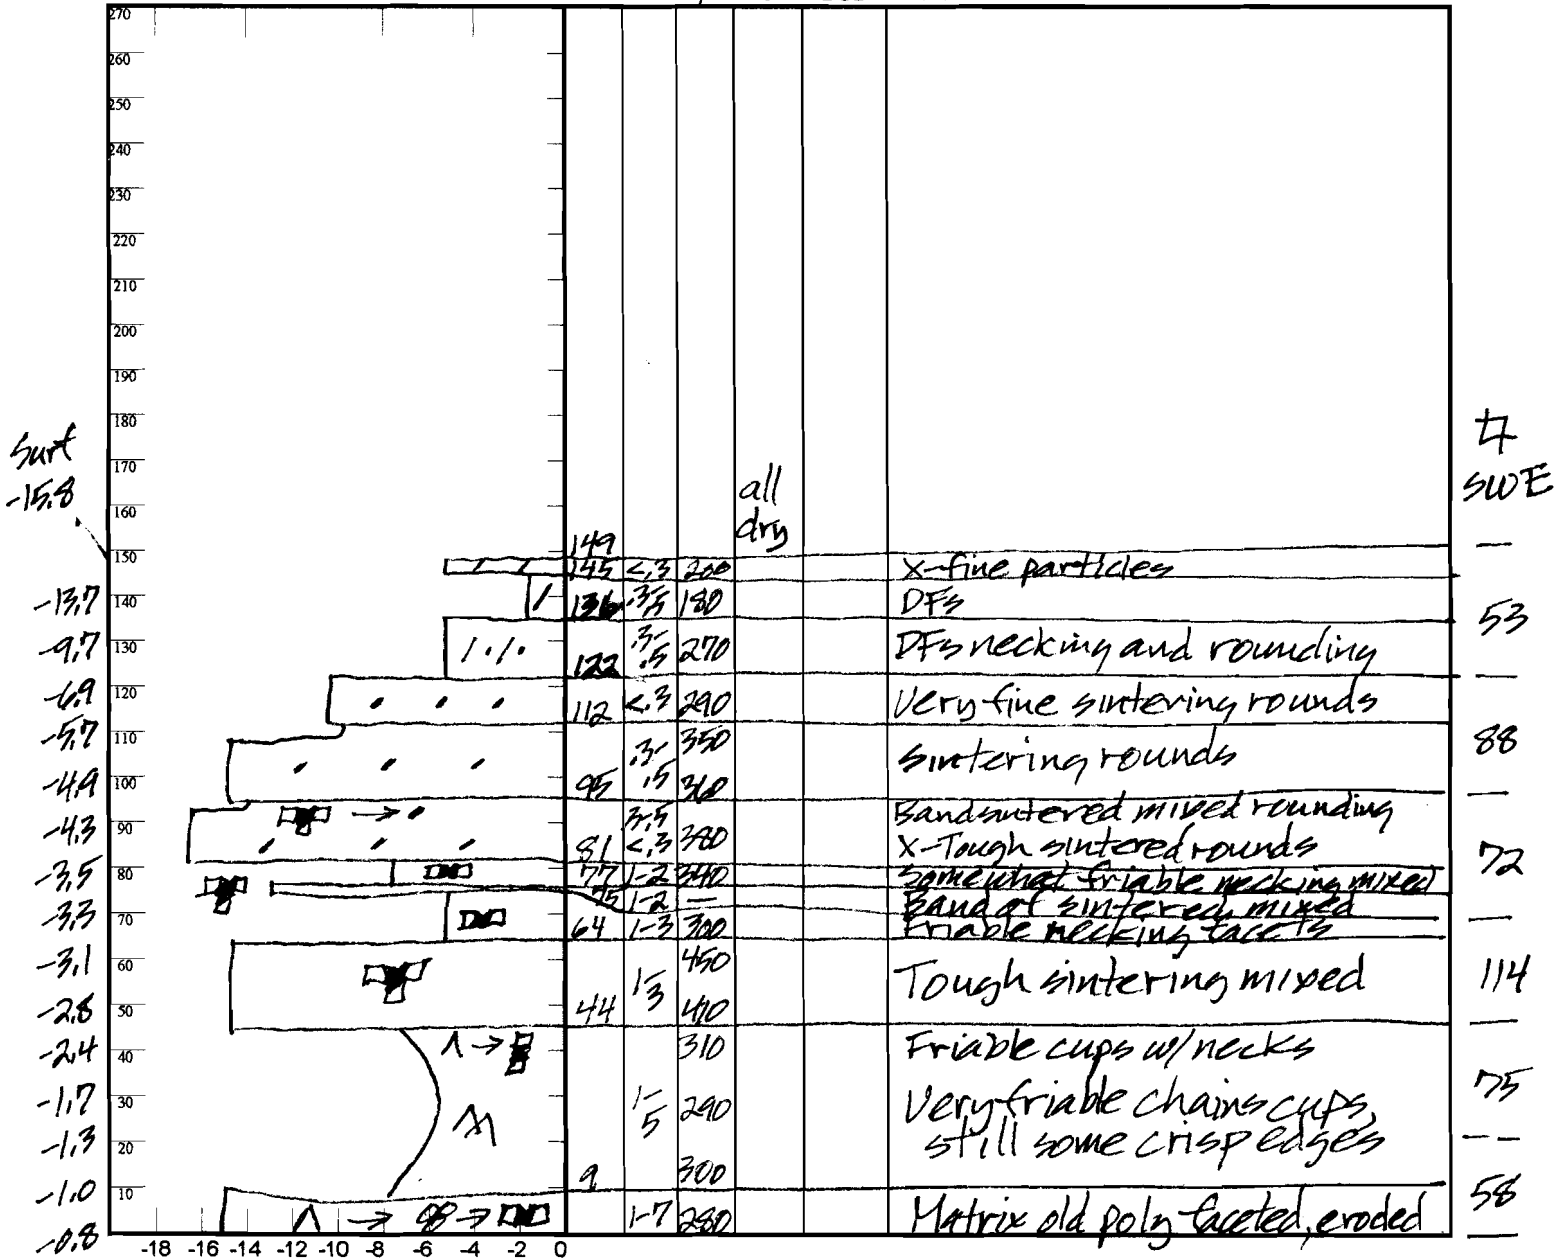 270
260
250
240
230
220
210
200
190
180
170
160
150
140
130
120
110
100
90
80
70
60
50
40
30
20
10
-18 -16 -14 -12 -10 -8 -6 -4 -2 0
Surf
-15.8
-13.7
-9.7
-6.9
-5.7
-4.9
-4.3
-3.5
-3.3
-3.1
-2.8
-2.4
-1.7
-1.3
-1.0
-0.8
all
dry
SWE
149
145 <.3 200 X-fine particles
136 .3-.5 180 DFs
53
122 .3-.5 270 DFs necking and rounding
112 <.3 290 Very fine sintering rounds
.3- 350
88
sintering rounds
95 .5 360
Band sintered mixed rounding
81 <.3 380 X-Tough sintered rounds
72
77 1-2 340 Somewhat friable necking mixed
75 1-2 — Band of sintered mixed
64 1-3 300 Friable necking facets
450
1-3 Tough sintering mixed 114
44 410
310 Friable cups w/necks
75
1-5 290 Very friable chains cups,
still some crisp edges
9 300
58
1-7 280 Matrix old poly faceted, eroded